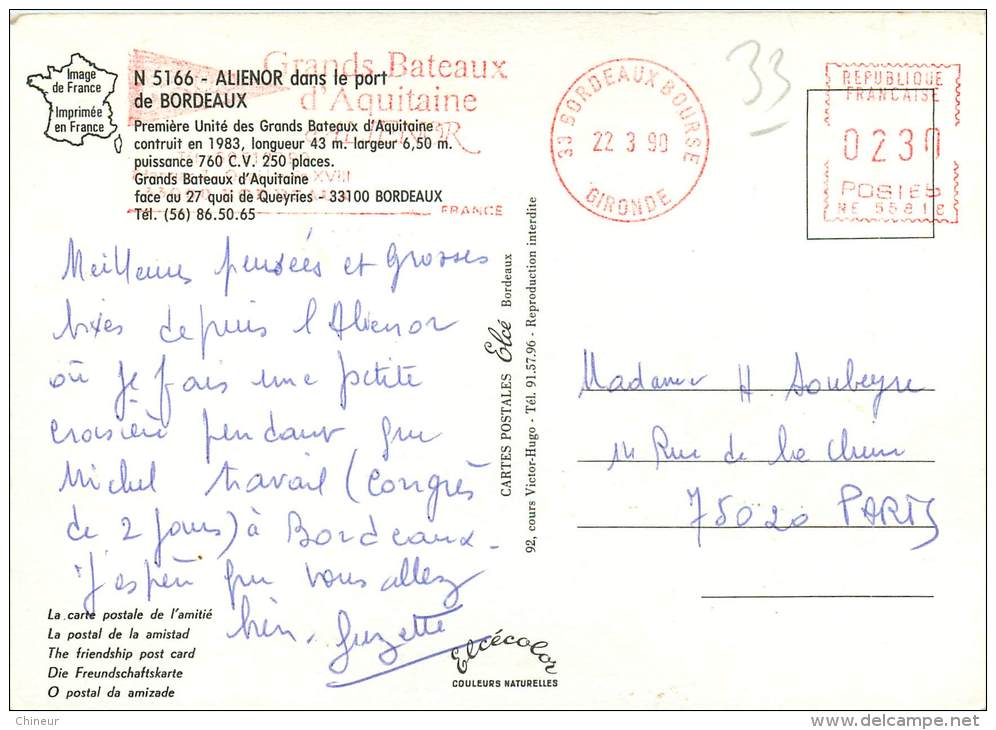 Image
de France
Imprimée
en France
N 5166 - ALIENOR dans le port
de BORDEAUX
Première Unité des Grands Bateaux d'Aquitaine
contruit en 1983, longueur 43 m. largeur 6,50 m.
puissance 760 C.V. 250 places.
Grands Bateaux d'Aquitaine
face au 27 quai de Queyries - 33100 BORDEAUX
Tél. (56) 86.50.65
Grands Bateaux
d'Aquitaine
FRANCE
33 BORDEAUX BOURSE
22 3 90
GIRONDE
33
REPUBLIQUE
FRANCAISE
0230
POSTES
NE 55818
Meilleures pensées et Grosses
bixes depuis l'Alienor
où je fais une petite
croisière pendant que
Michel travail (Congrès
de 2 jours) à Bordeaux.
J'espère que vous allez
bien. Suzette
CARTES POSTALES Elcé Bordeaux
92, cours Victor-Hugo - Tél. 91.57.96 - Reproduction interdite
Madame H. Soubeyre
14 Rue de la Chine
75020 PARIS
La carte postale de l'amitié
La postal de la amistad
The friendship post card
Die Freundschaftskarte
O postal da amizade
Elcécolor
COULEURS NATURELLES
Chineur
delcampe.net